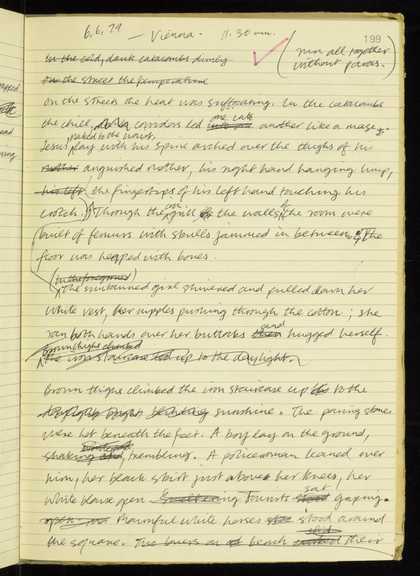 6.6.79 — Vienna. 11.30 a.m.
199
(run all together
without paras.)
In the cold, dark catacombs dimly
On the street the temperature
On the streets the heat was suffocating. In the catacombs
one cell
the chief, corridors led another like a maze.
naked to the waist,
Jesus lay with his spine arched over the thighs of his
anguished mother, his right hand hanging limp,
her left the fingertips of his left hand touching his
crotch. Through the grill the walls of the room were
built of femurs with skulls jammed in between. The
floor was heaped with bones.
(In the foreground)
The suntanned girl shivered and pulled down her
white vest, her nipples pushing through the cotton; she
ran both hands over her buttocks and hugged herself.
Brown thighs climbed
the iron staircase up to the daylight.
Brown thighs climbed the iron staircase up to the
sunshine. The paving stones
were hot beneath the feet. A boy lay on the ground,
shaking and trembling. A policewoman leaned over
him, her black skirt just above her knees, her
sat
white blouse open. Tourists stood gaping.
Mournful white horses stood around
the square. The lovers on beach their